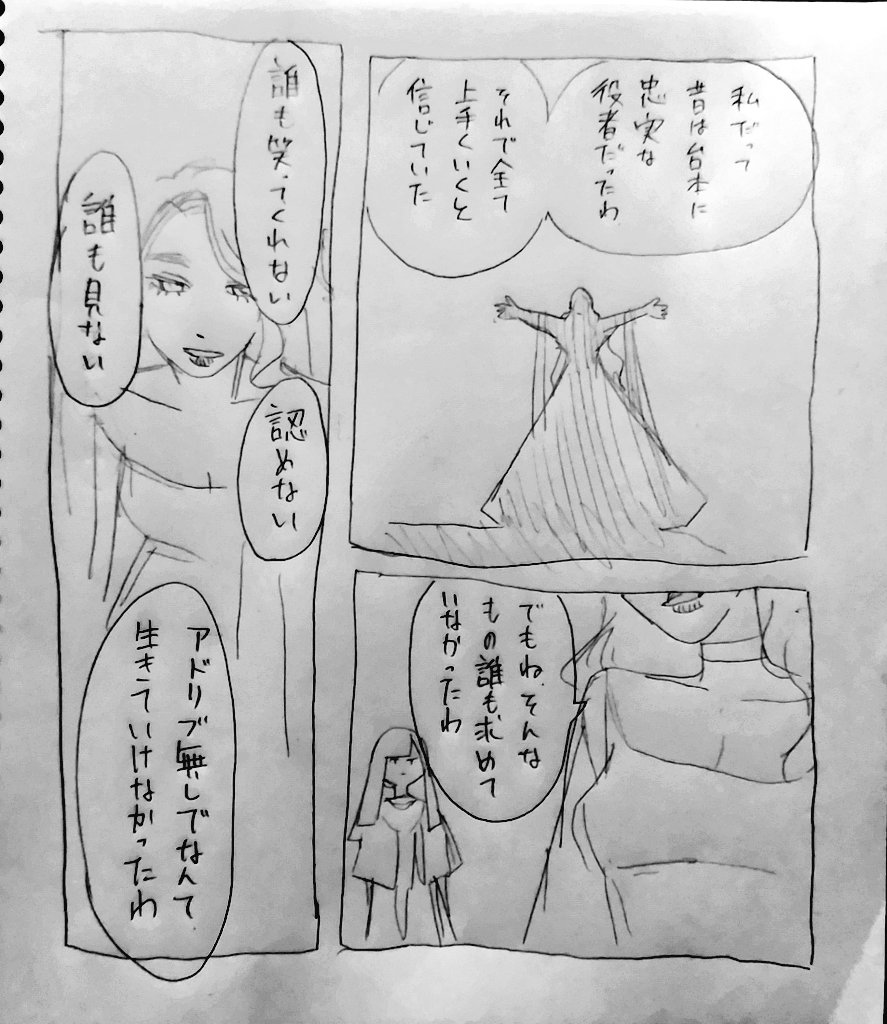 私だって
昔は台本に
忠実な
役者だったわ
それで全て
上手くいくと
信じていた
でもね、そんな
もの誰も求めて
いなかったわ
誰も笑ってくれない
誰も見ない
認めない
アドリブ無しでなんて
生きていけなかったわ